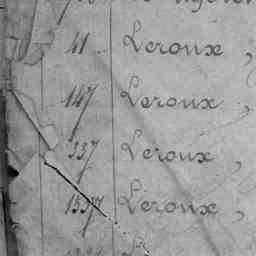 41 Leroux,
147 Leroux,
337 Leroux,
1537 Leroux,